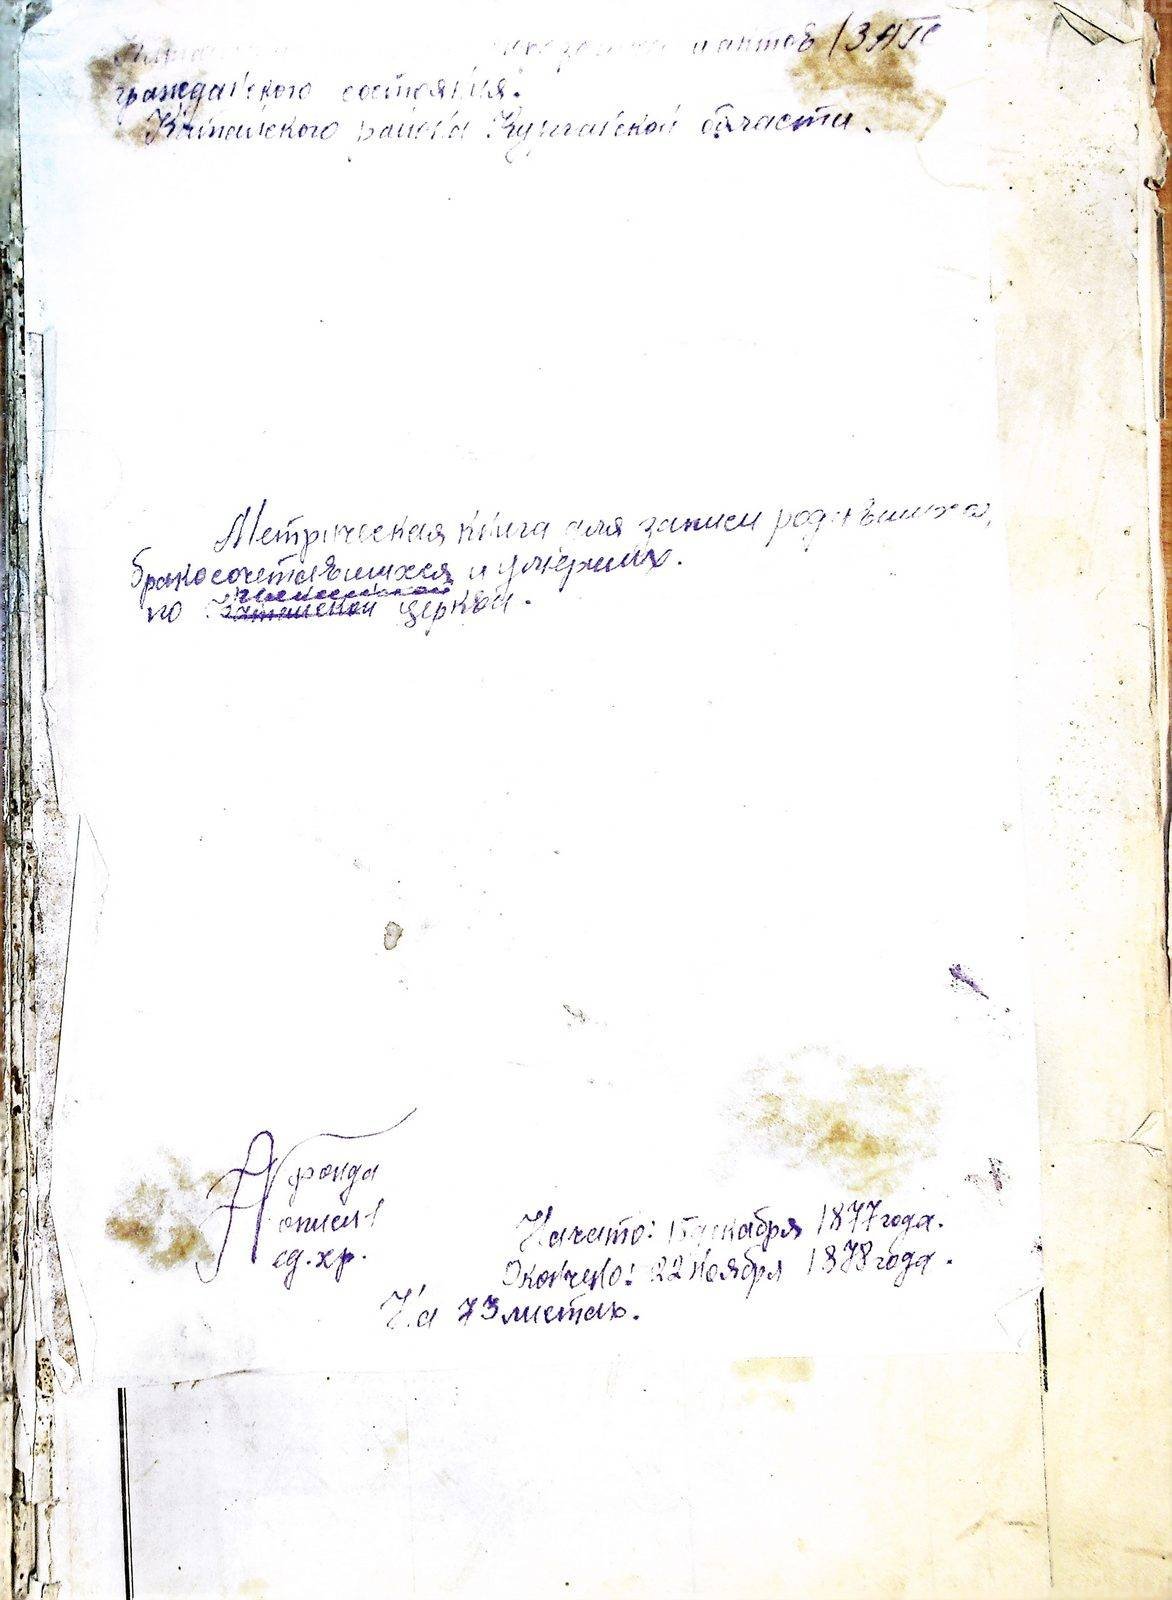 актов /ЗАГС
гражданского состояния.
Катайского района Курганской области.
Метрическая книга для записи родившихся,
бракосочетавшихся и умерших.
по Катайской церкви.
фонда
описи 1
ед.хр.
Начато: 15 декабря 1877 года.
Окончено: 22 ноября 1878 года.
На 73 листах.